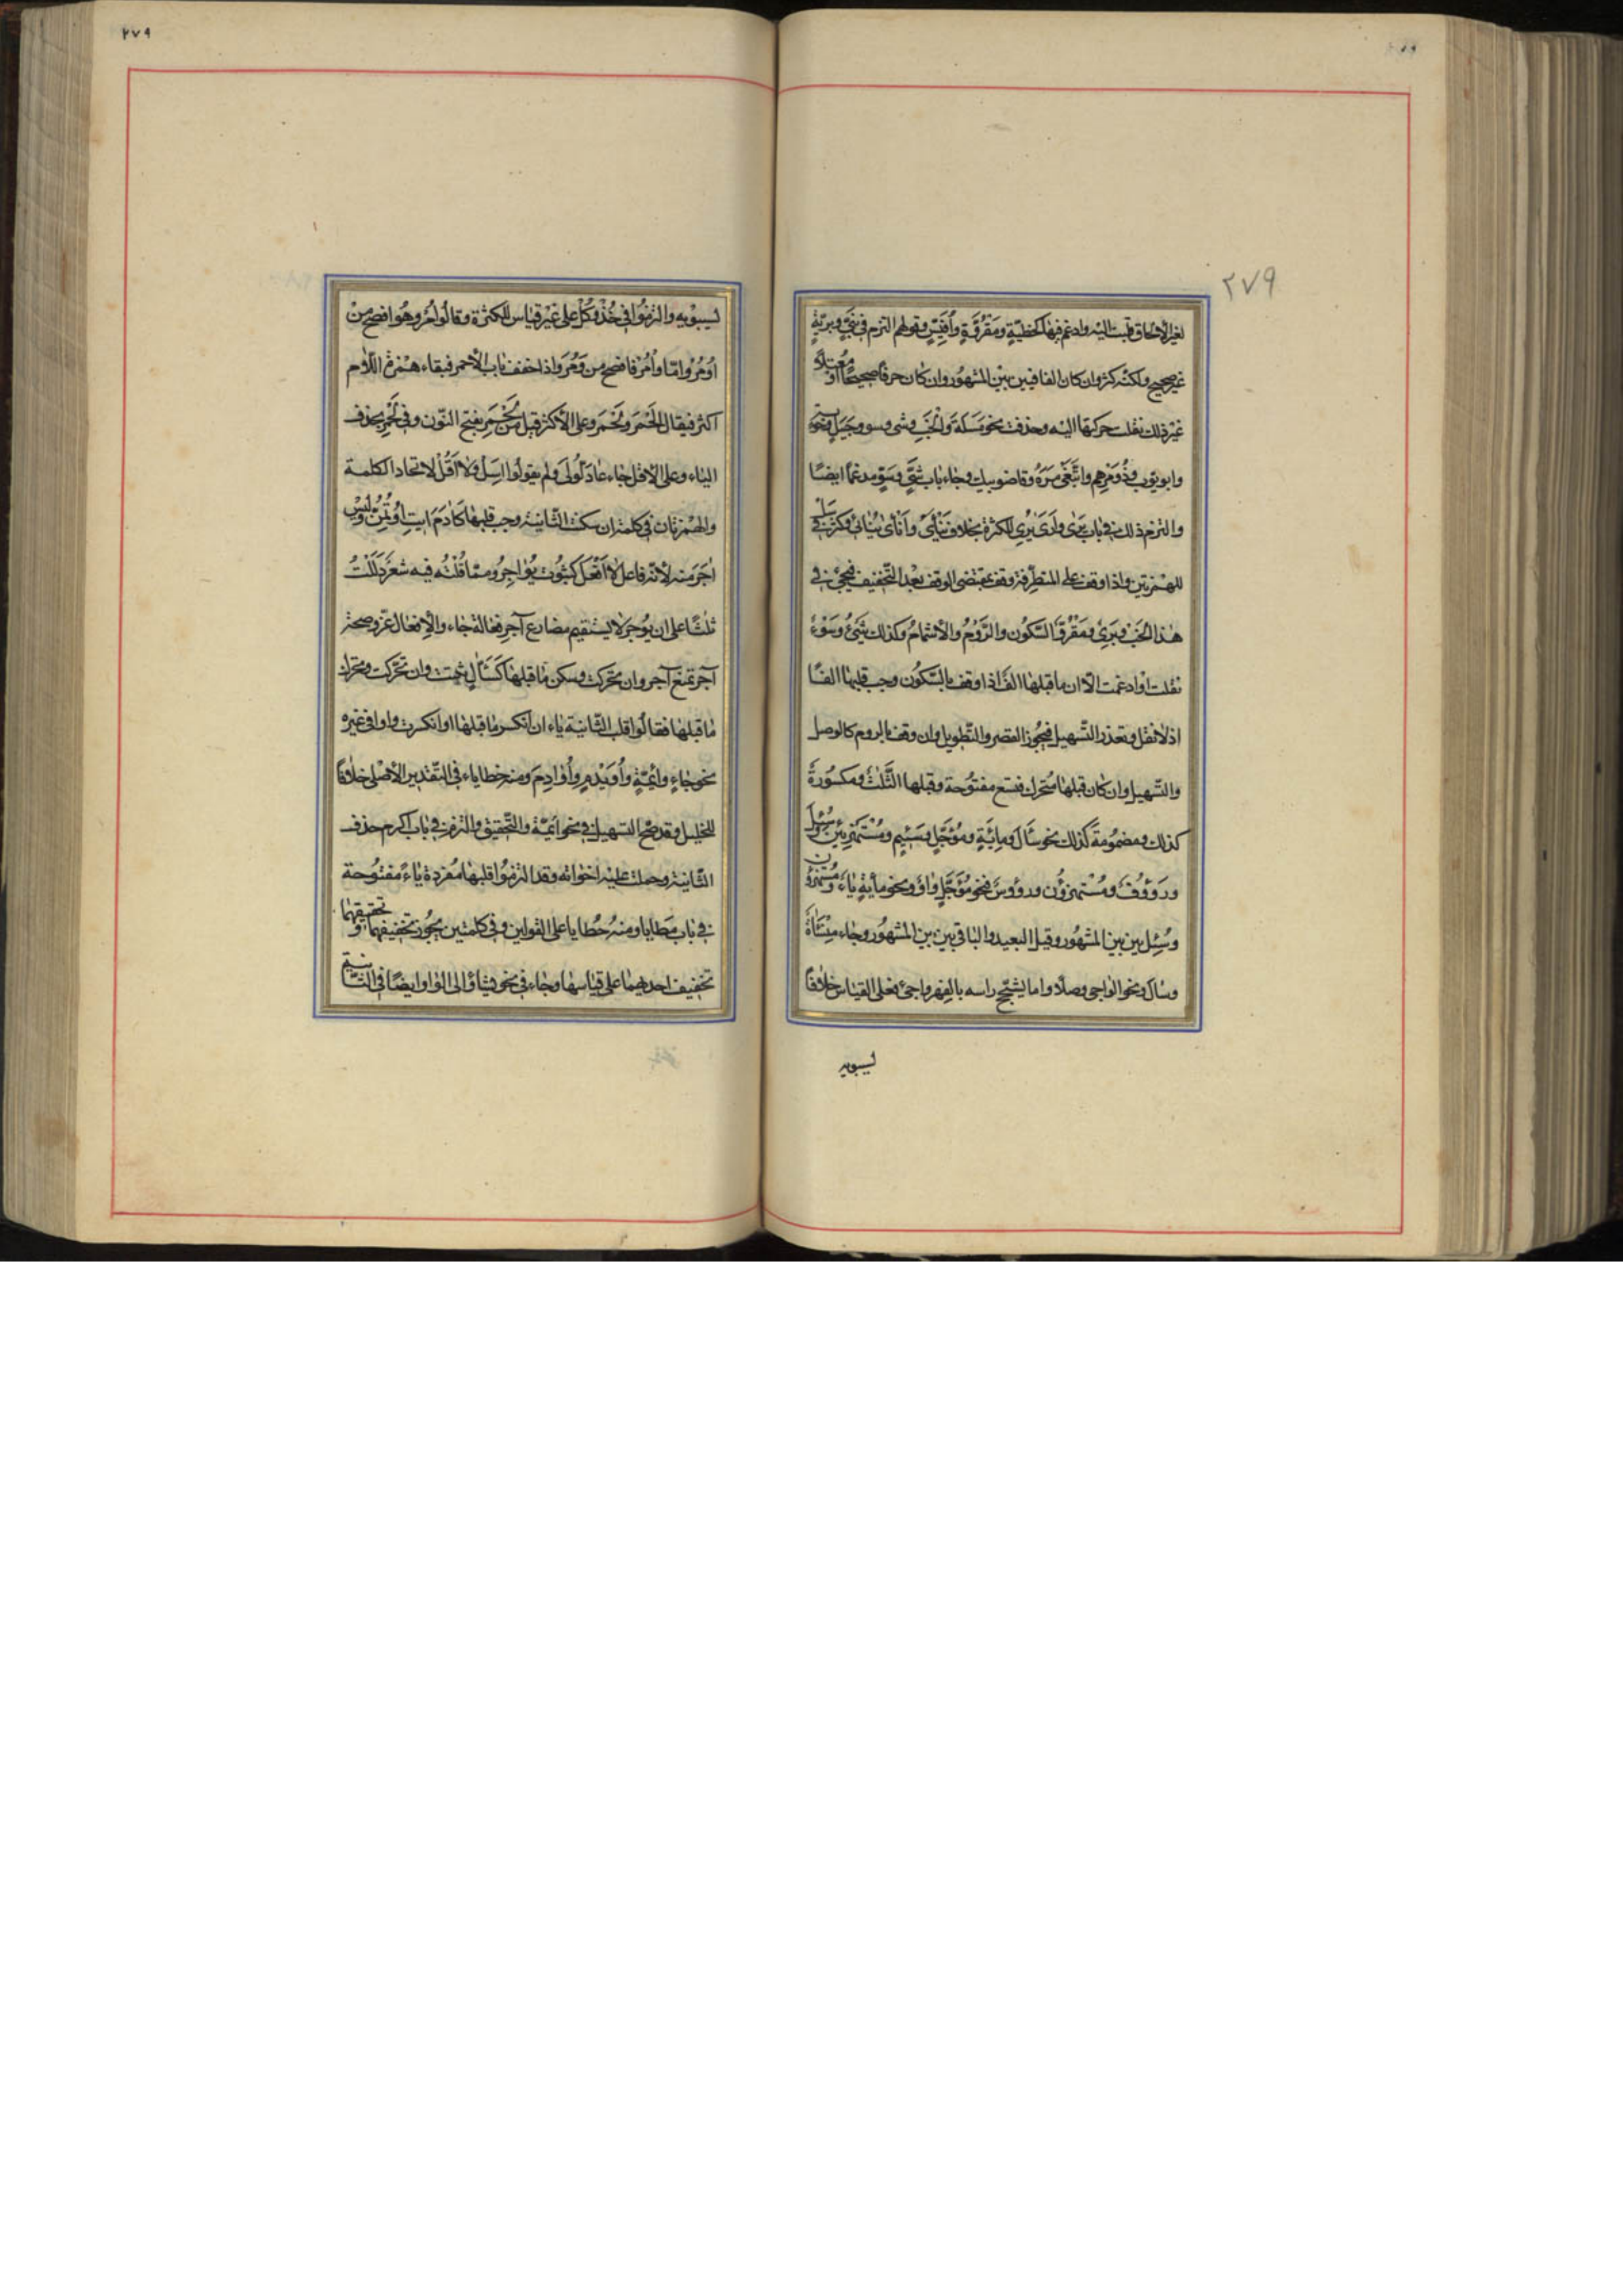 ٢٧٩
لغير الالحاق قلبت اليه وادغم فيها كخطيّة ومقروّة وأفيّس وقولهم التزم في نبيّ وبريّة
غير صحيح ولكنّه كثر وان كان الفا فبين بين المشهور وان كان حرفا صحيحًا او معتلاً
غير ذلك نقلت حركتها اليه وحذفت نحو مسلة والخب وشى وسو وجيل وحوبة
وابو يّوب وذو مرهم واتبعى مره وقاضو بيك وجاء باب شيّ وسوّ مدغما ايضًا
والتزم ذلك في باب يرى وارى يرى للكثرة بخلاف ينأى وأنأى ينئى وكثر في سل
للهمزتين واذا وقف على المتطرفة وقف بمقتضى الوقف بعد التخفيف فيجئ في
هذا الخب وبرى ومقروّ السّكون والرّوم والاشمام وكذلك شيئ وسوء
نقلت او ادغمت الّا ان ما قبلها الفا اذا وقف بالسّكون وجب قلبها الفًا
اذ لا نقل وتعذر التّسهيل فيجوز القصر والتّطويل وان وقف بالروم كالوصل
والتّسهيل وان كان قبلها متحرك فتسع مفتوحة وقبلها الثّلث ومكسورة
كذلك ومضمومة كذلك نحو سأل ومائة ومؤجّل وسئيم ومستهزئين وسئل
ورؤوف ومستهزؤن ورؤوس فنحو مؤجّل واو ونحو مأية ياء ومستهزؤن
وسئل بين بين المشهور وقيل البعيد والباقي بين بين المشهور وجاء منساة
وسال ونحو الواجي وصلا واما يشجّج راسه بالفهر واجى فعلى القياس خلافًا
لسيبويه
٢٧٩
لسيبويه والتزموا في خذ وكل على غير قياس للكثرة وقالوا مر وهو افصح من
اومر وامّا وأمر فافصح من ومر واذا خفف باب الاحمر فبقاء همزة اللّام
اكثر فيقال الحمر ولحمر وعلى الاكثر قيل من لحمر بفتح النّون وفي لحمر بحذف
الياء وعلى الاقل جاء عاد لّولى ولم يقولوا اسل ولا اقل لاتحاد الكلمة
والهمزتان في كلمة ان سكنت الثّانية وجب قلبها كآدم ايت اوتمن وليس
اجر منه لانّه فاعل لا افعل كثبوت يواجر وممّا قلته فيه شعر دللت
ثلثًا على ان يوجر لا يستقيم مضارع آجر فعالة جاء والافعال عز وصحة
آجر تمنع آجر وان تحركت وسكن ما قبلها كسأل ثبتت وان تحرّكت وتحرك
ما قبلها فقالوا قلب الثّانية ياء ان انكسر ما قبلها او انكسرت واوا في غيره
نحو جاء وائمّة وأويدم وأوادم ومنه خطايا في التّقدير الاصلي خلافًا
للخليل وقد صحّ التسهيل في نحو ائمّة والتّحقيق والتزم في باب اكرم حذف
الثّانية وحملت عليه اخواته وقد التزموا قلبها مفردة ياءً مفتوحة
في باب مطايا ومنه خطايا على القولين وفي كلمتين يجوز تخفيفهما وتحقيقهما
تخفيف احديهما على قياسها وجاء في نحو يشاؤ الى الواو ايضًا في الثّانية